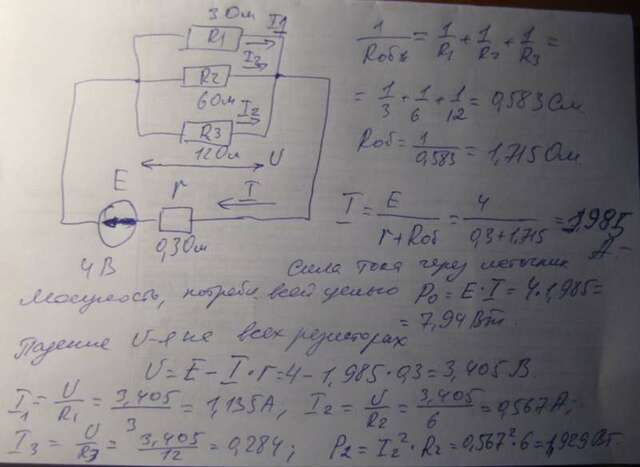 3 Ом I1
R1
I3
R2
6 Ом I2
R3
12 Ом
U
E r I
4 В 0,3 Ом
1/Rобщ = 1/R1 + 1/R2 + 1/R3 =
= 1/3 + 1/6 + 1/12 = 0,583 См
Rоб = 1/0,583 = 1,715 Ом
I = E/(r+Rоб) = 4/(0,3+1,715) = 1,985 А
Сила тока через источник
Мощность, потребл. всей цепью P0 = E·I = 4·1,985 =
= 7,94 Вт.
Падение U-я на всех резисторах
U = E - I·r = 4 - 1,985·0,3 = 3,405 В
I1 = U/R1 = 3,405/3 = 1,135 А, I2 = U/R2 = 3,405/6 = 0,567 А;
I3 = U/R3 = 3,405/12 = 0,284; P2 = I2²·R2 = 0,567²·6 = 1,929 Вт.